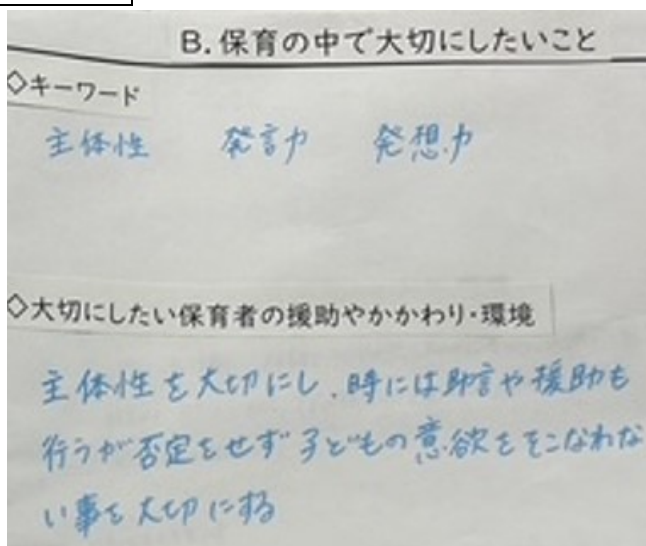 B.保育の中で大切にしたいこと
◇キーワード
主体性 発言力 発想力
◇大切にしたい保育者の援助やかかわり・環境
主体性を大切にし、時には助言や援助も
行うが否定をせず子どもの意欲をそこなわれな
い事を大切にする